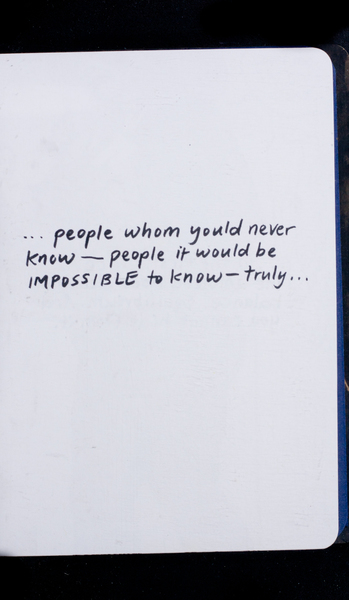 ... people whom yould never
know — people it would be
IMPOSSIBLE to know — truly...